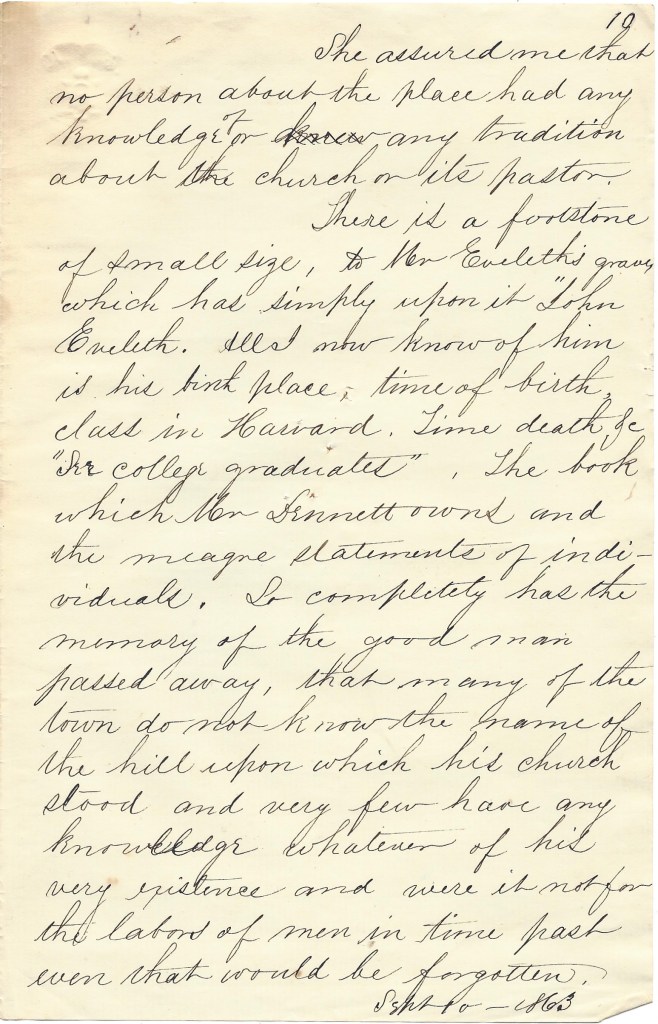 10
She assured me that
no person about the place had any
knowledge of or knew any tradition
about the church or its pastor.
There is a footstone
of small size, to Mr Eveleth's grave,
which has simply upon it "John
Eveleth. All I now know of him
is his birth place, time of birth,
class in Harvard. Time death, &c
"See college graduates", The book
which Mr Dennett owns and
the meagre statements of indi-
viduals. So completely has the
memory of the good man
passed away, that many of the
town do not know the name of
the hill upon which his church
stood and very few have any
knowledge whatever of his
very existence and were it not for
the labors of men in time past
even that would be forgotten.
Sept 10 - 1863